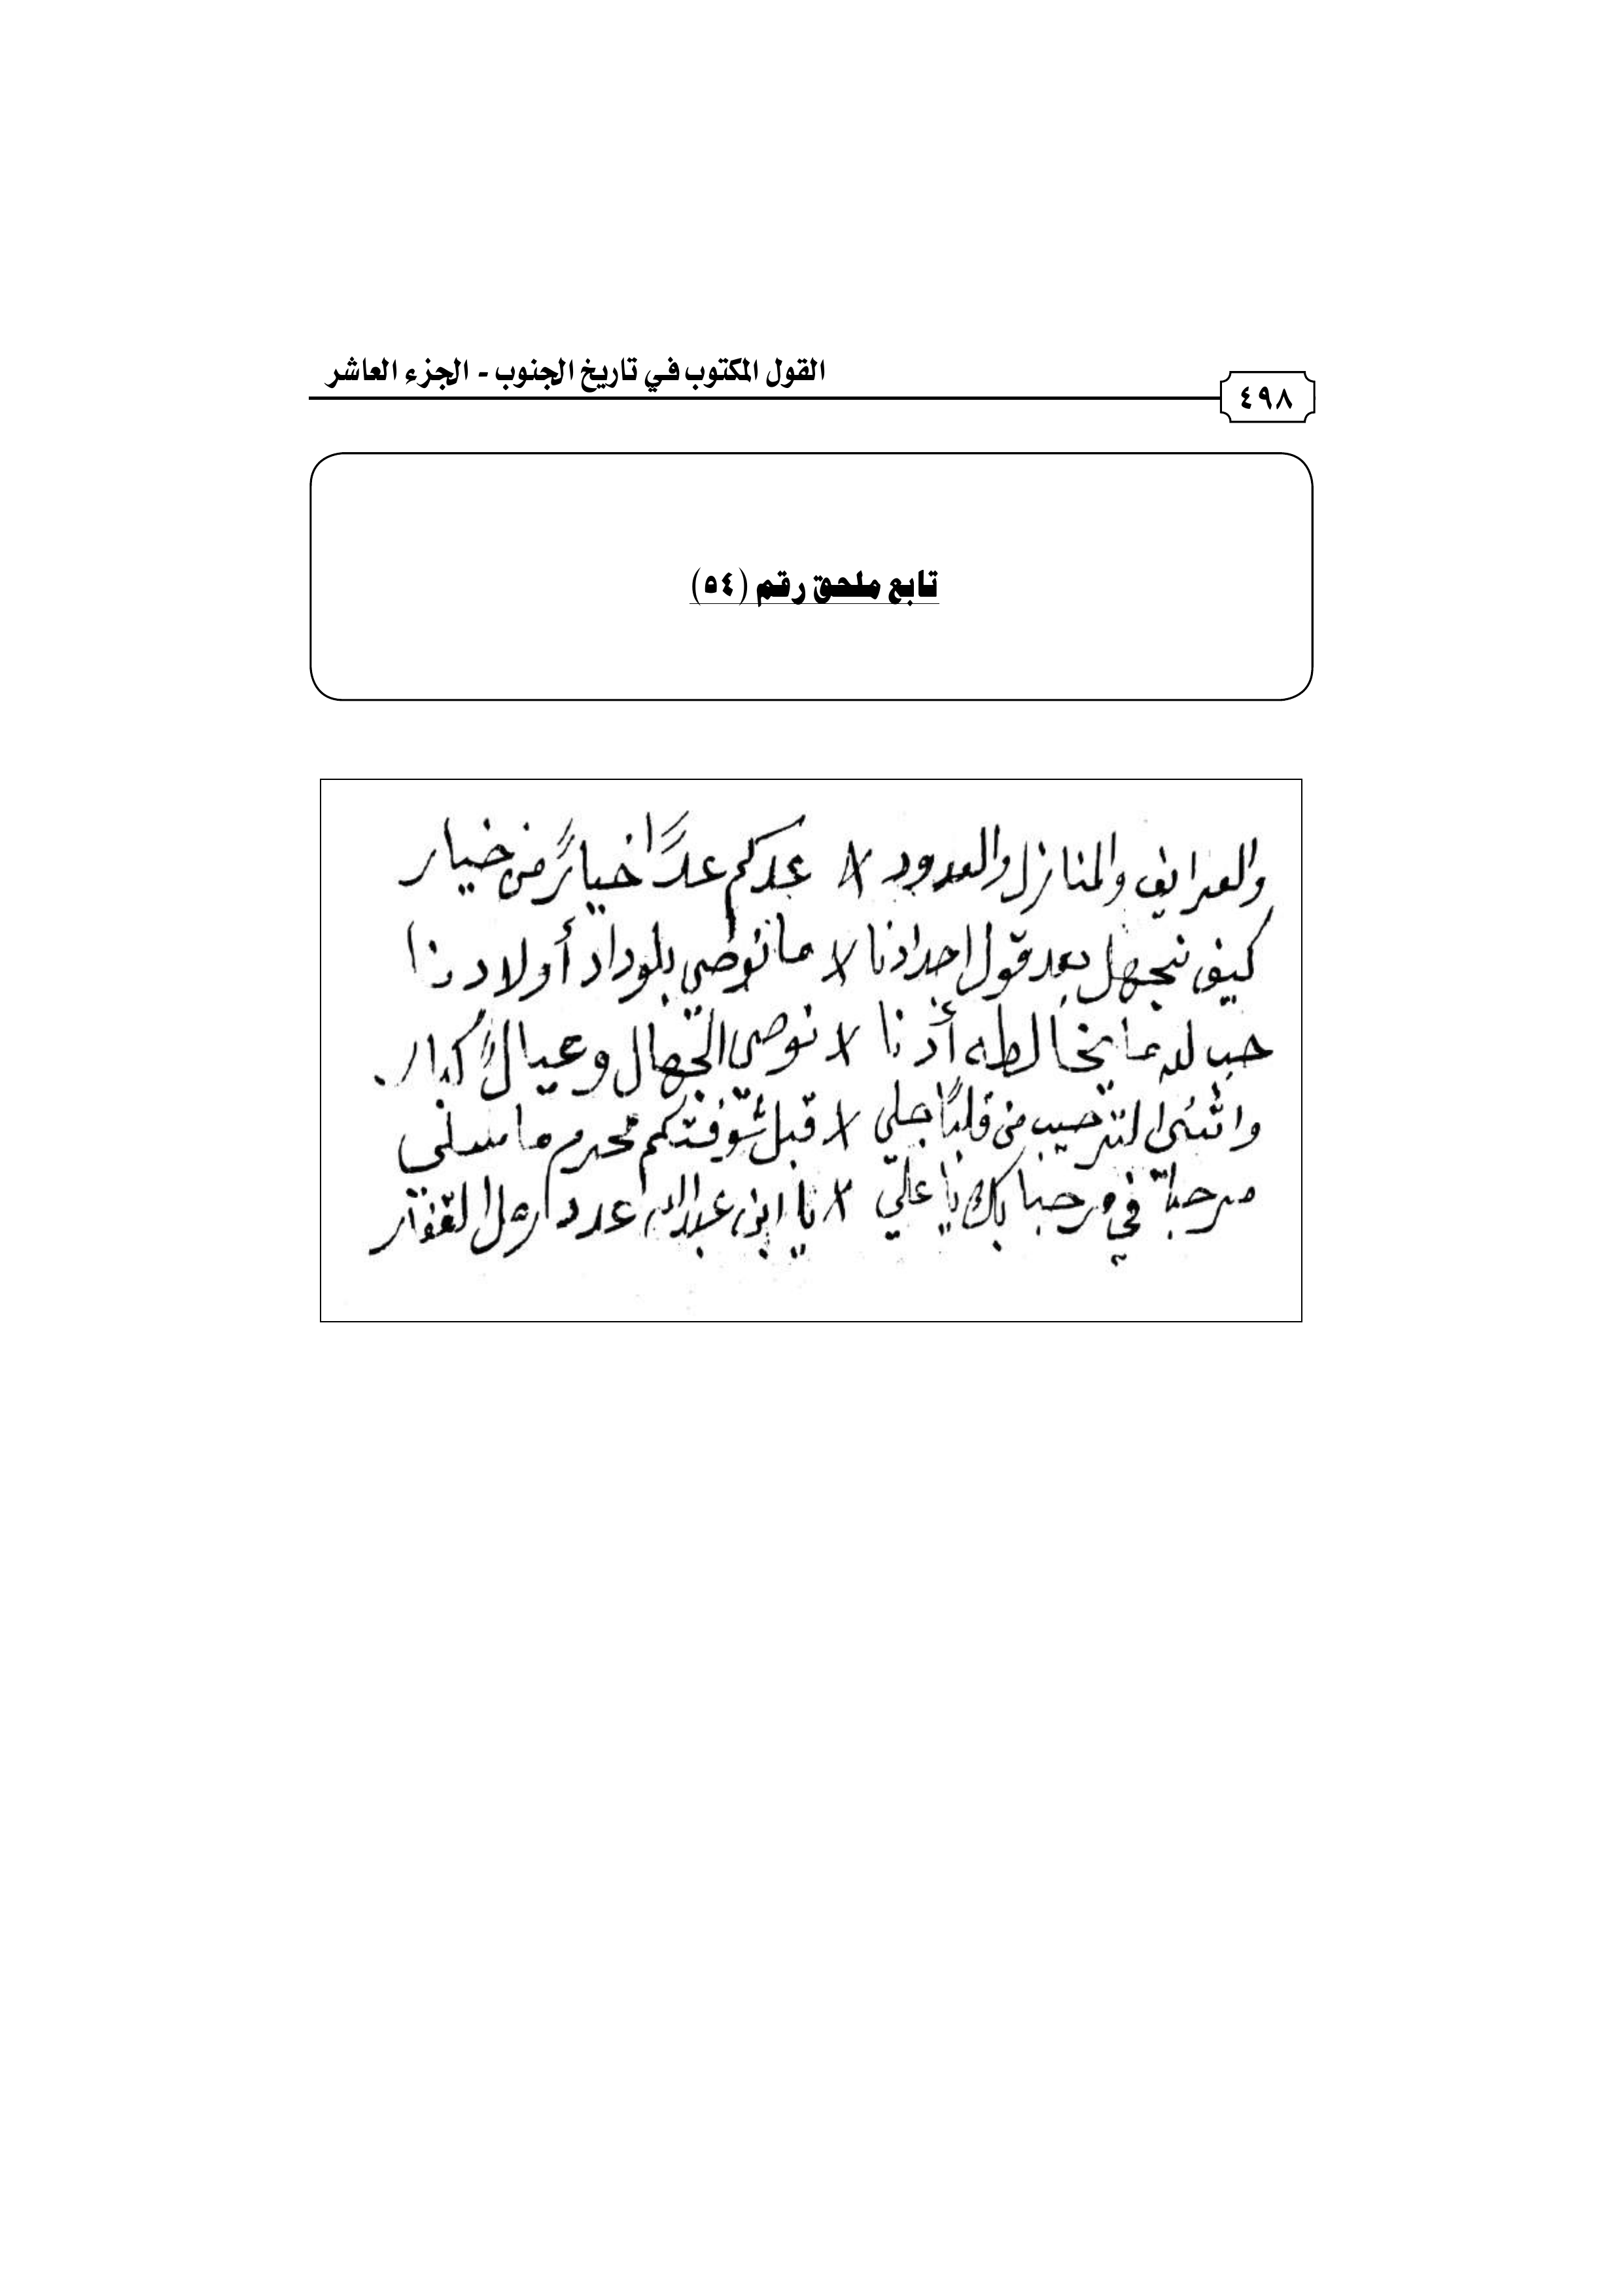 القول المكتوب في تاريخ الجنوب - الجزء العاشر
٤٩٨
تابع ملحق رقم (٥٤)
والعرايف والمنازل والعدود لا عدكم عدًا خيارً من خيار
كيف نجهل بعد قول اجدادنا لا ما نوصي بلوداد أولادنا
حب لله ما يخالطه أذنا لا نوصي الجهال وعيالً كبار
واثنى الترحيب من قلبًا جلي لا قبل شوفتكم محرم ما
مرحبا في مرحبا بك يا علي لا يا ابن عبدالله اعداد رمل القفار